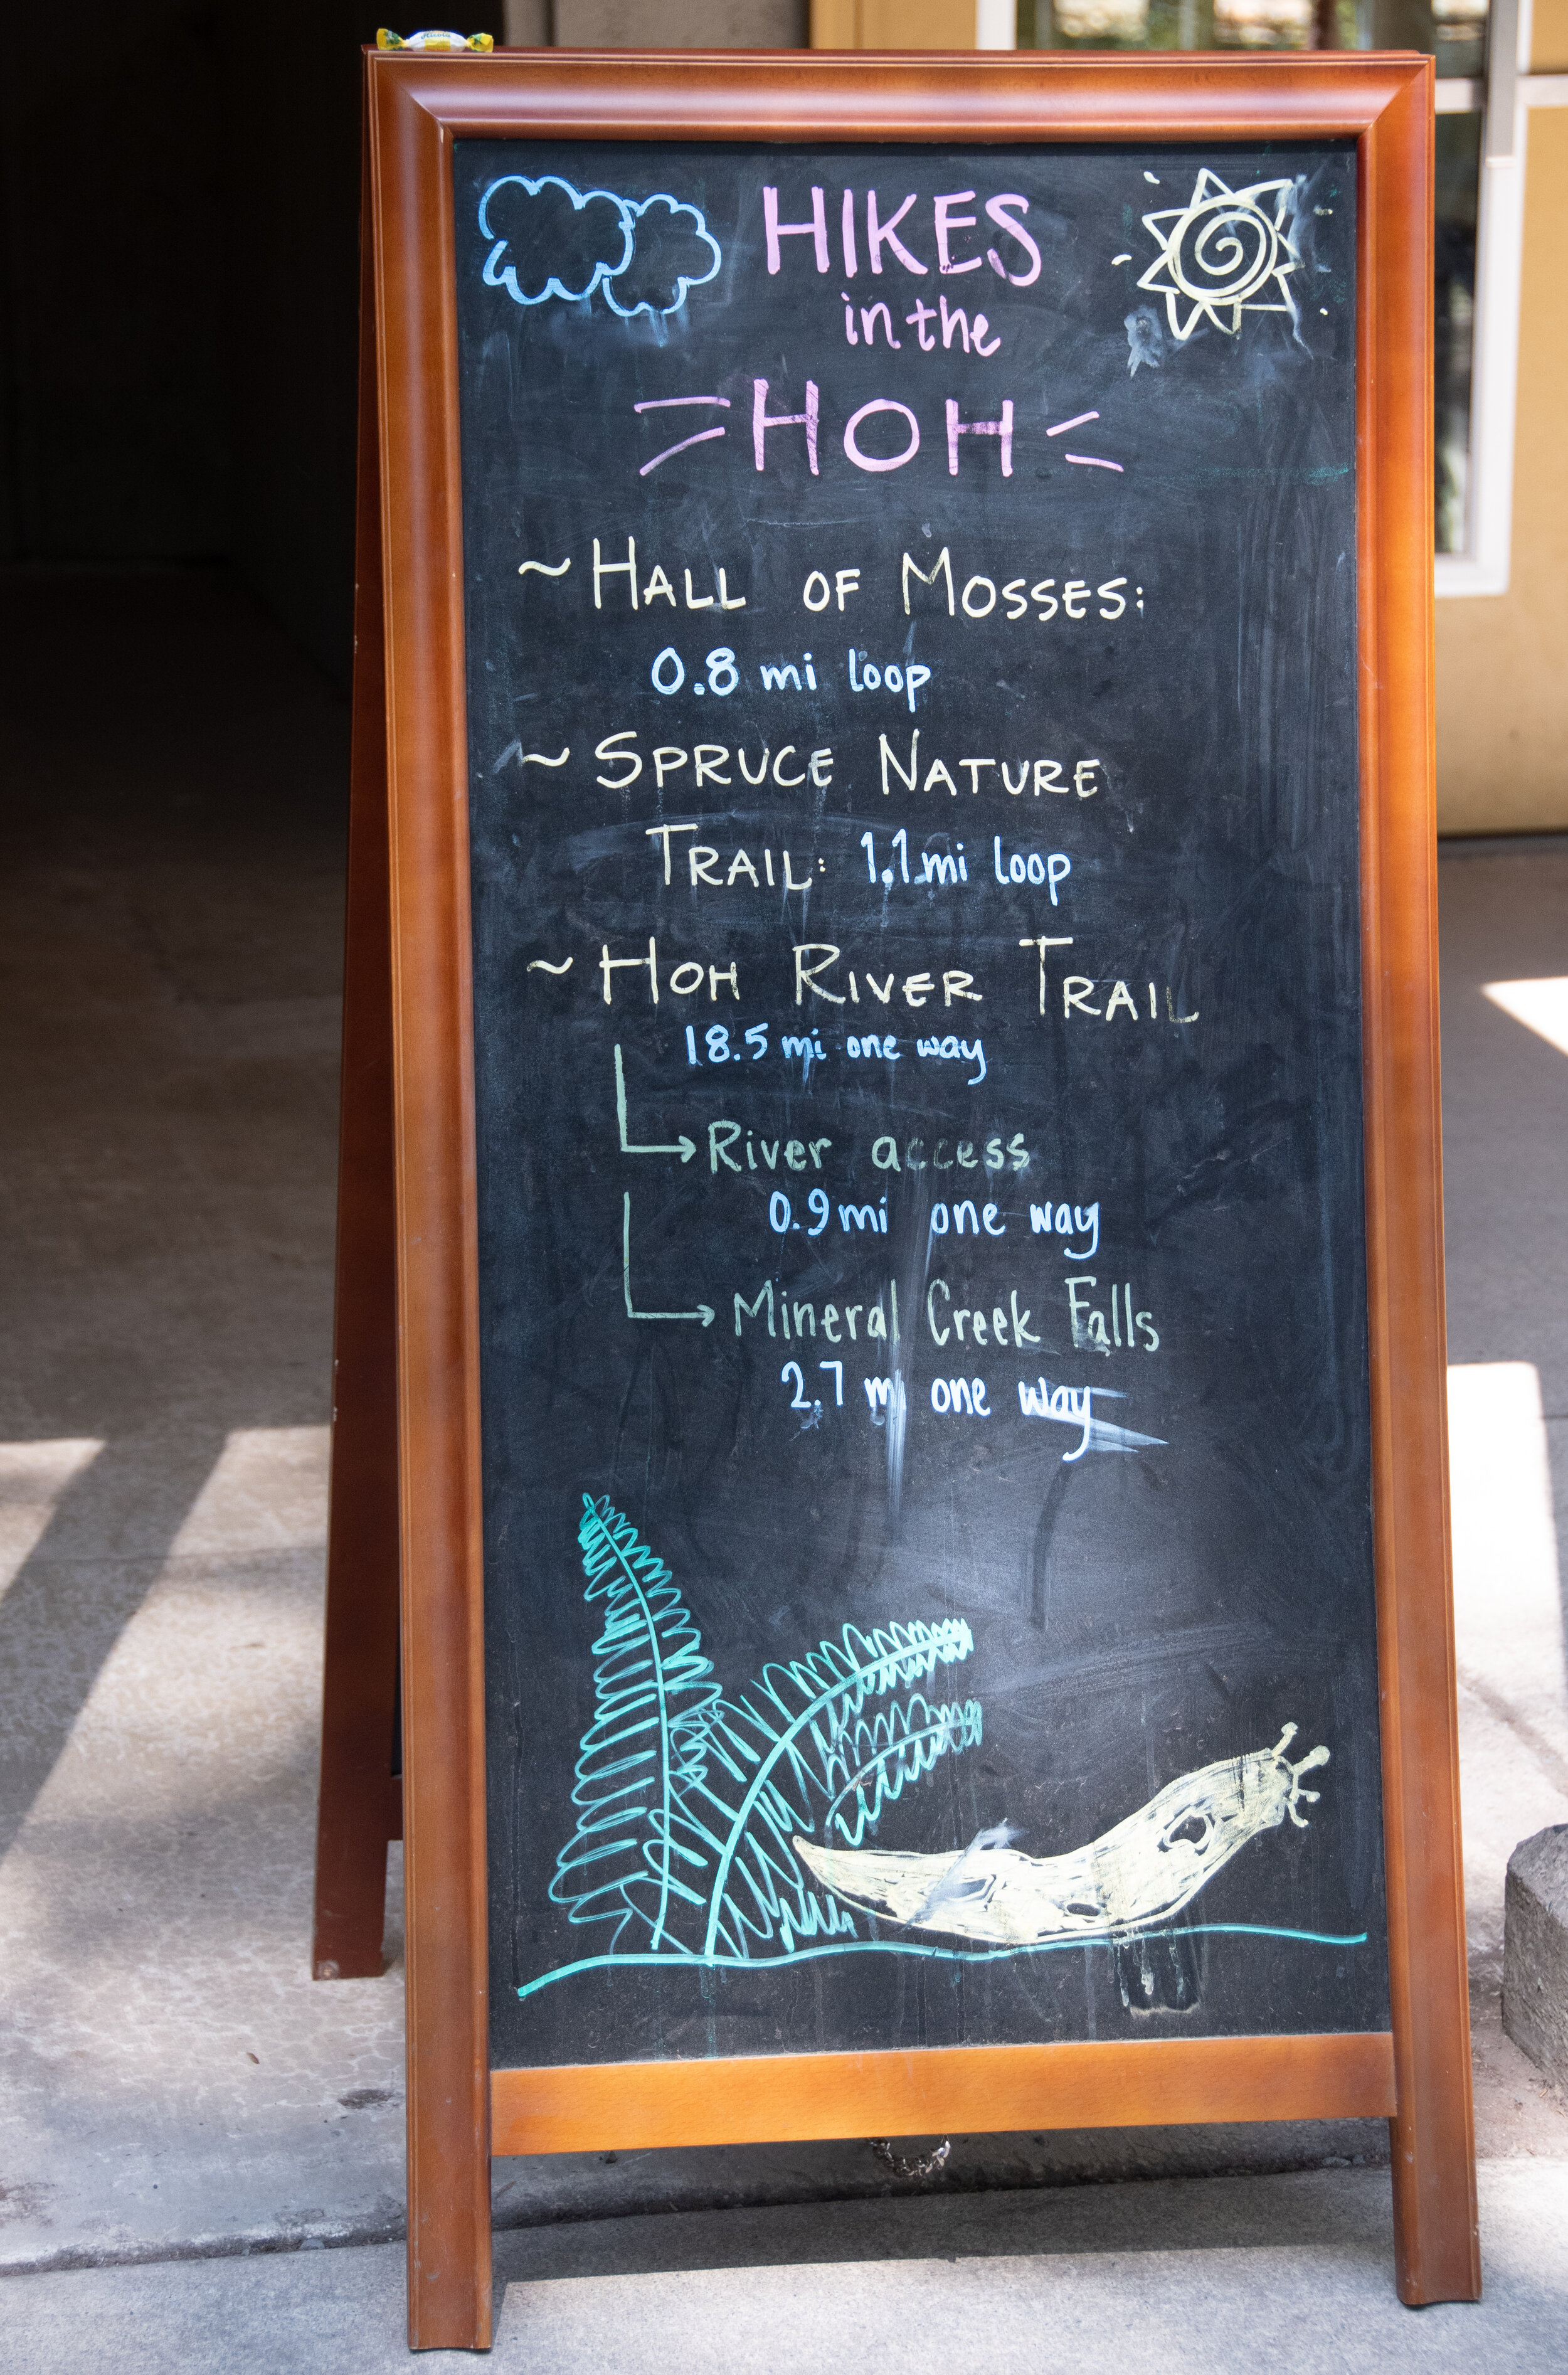 HIKES
in the
HOH
~ HALL OF MOSSES:
0.8 mi loop
~ SPRUCE NATURE
TRAIL: 1.1 mi loop
~ HOH RIVER TRAIL
18.5 mi one way
→ River access
0.9 mi one way
→ Mineral Creek Falls
2.7 mi one way